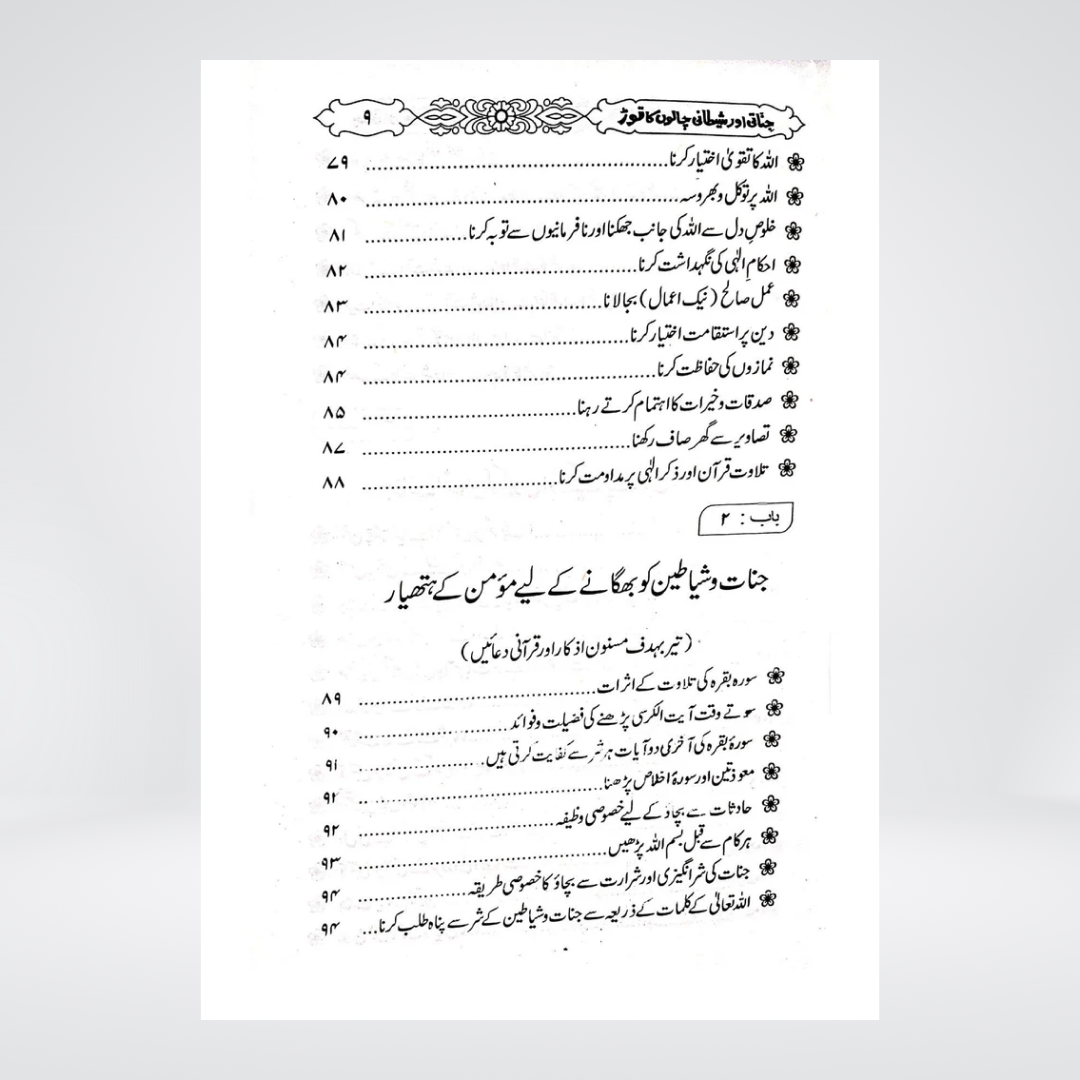 جناتی اور شیطانی چالوں کا توڑ ۹
اللہ کا تقویٰ اختیار کرنا ۷۹
اللہ پر توکل و بھروسہ ۸۰
خلوصِ دل سے اللہ کی جانب جھکنا اور نافرمانیوں سے توبہ کرنا ۸۱
احکامِ الٰہی کی نگہداشت کرنا ۸۲
عمل صالح (نیک اعمال) بجالانا ۸۳
دین پر استقامت اختیار کرنا ۸۴
نمازوں کی حفاظت کرنا ۸۴
صدقات و خیرات کا اہتمام کرتے رہنا ۸۵
تصاویر سے گھر صاف رکھنا ۸۷
تلاوت قرآن اور ذکر الٰہی پر مداومت کرنا ۸۸
باب : ۲
جنات و شیاطین کو بھگانے کے لیے مؤمن کے ہتھیار
(تیر بہدف مسنون اذکار اور قرآنی دعائیں)
سورہ بقرہ کی تلاوت کے اثرات ۸۹
سوتے وقت آیت الکرسی پڑھنے کی فضیلت و فوائد ۹۰
سورۂ بقرہ کی آخری دو آیات ہر شر سے کفایت کرتی ہیں ۹۱
معوذتین اور سورۂ اخلاص پڑھنا ۹۲
حادثات سے بچاؤ کے لیے خصوصی وظیفہ ۹۲
ہر کام سے قبل بسم اللہ پڑھیں ۹۳
جنات کی شر انگیزی اور شرارت سے بچاؤ کا خصوصی طریقہ ۹۴
اللہ تعالیٰ کے کلمات کے ذریعہ سے جنات و شیاطین کے شر سے پناہ طلب کرنا ۹۴